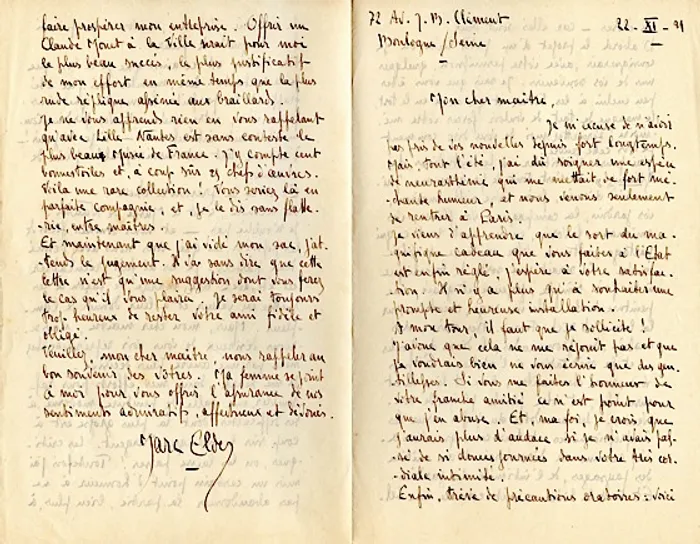 faire prospérer mon entreprise. Offrir un
Claude Monet à la Ville serait pour moi
le plus beau succès, le plus justificatif
de mon effort en même temps que la plus
rude réplique assénée aux braillards.
Je ne vous apprends rien en vous rappelant
qu'avec Lille, Nantes est sans conteste le
plus beau Musée de France. J'y compte cent
bonnes toiles et, à coup sûr 25 chefs d'œuvres.
Voilà une rare collection ! Vous seriez là en
parfaite compagnie, et, je le dis sans flatte-
-rie, entre maîtres.
Et maintenant que j'ai vidé mon sac, j'at-
-tends le jugement. Il va sans dire que cette
lettre n'est qu'une suggestion dont vous ferez
le cas qu'il vous plaira. Je serai toujours
trop heureux de rester votre ami fidèle et
obligé.
Veuillez, mon cher maître, nous rappeler au
bon souvenir des vôtres. Ma femme se joint
à moi pour vous offrir l'assurance de nos
sentiments admiratifs, affectueux et dévoués.
Marc Elder
72 Av. J. B. Clément
22 - XI - 21
Boulogne s/Seine
Mon cher maître,
Je m'accuse de n'avoir
pas pris de vos nouvelles depuis fort longtemps.
Mais, tout l'été, j'ai dû soigner une espèce
de neurasthénie qui me mettait de fort mé-
-chante humeur, et nous venons seulement
de rentrer à Paris.
Je viens d'apprendre que le sort du ma-
-gnifique cadeau que vous faites à l'Etat
est enfin réglé, j'espère à votre satisfac-
-tion. Il n'y a plus qu'à souhaiter une
prompte et heureuse installation.
A mon tour, il faut que je sollicite !
J'avoue que cela ne me réjouit pas et que
je voudrais bien ne vous écrire que des gen-
-tillesses. Si vous me faites l'honneur de
votre franche amitié ce n'est point pour
que j'en abuse. Et, ma foi, je crois que
j'aurais plus d'audace si je n'avais pas-
-sé de si douces journées dans votre très cor-
-diale intimité.
Enfin, trève de précautions oratoires : voici